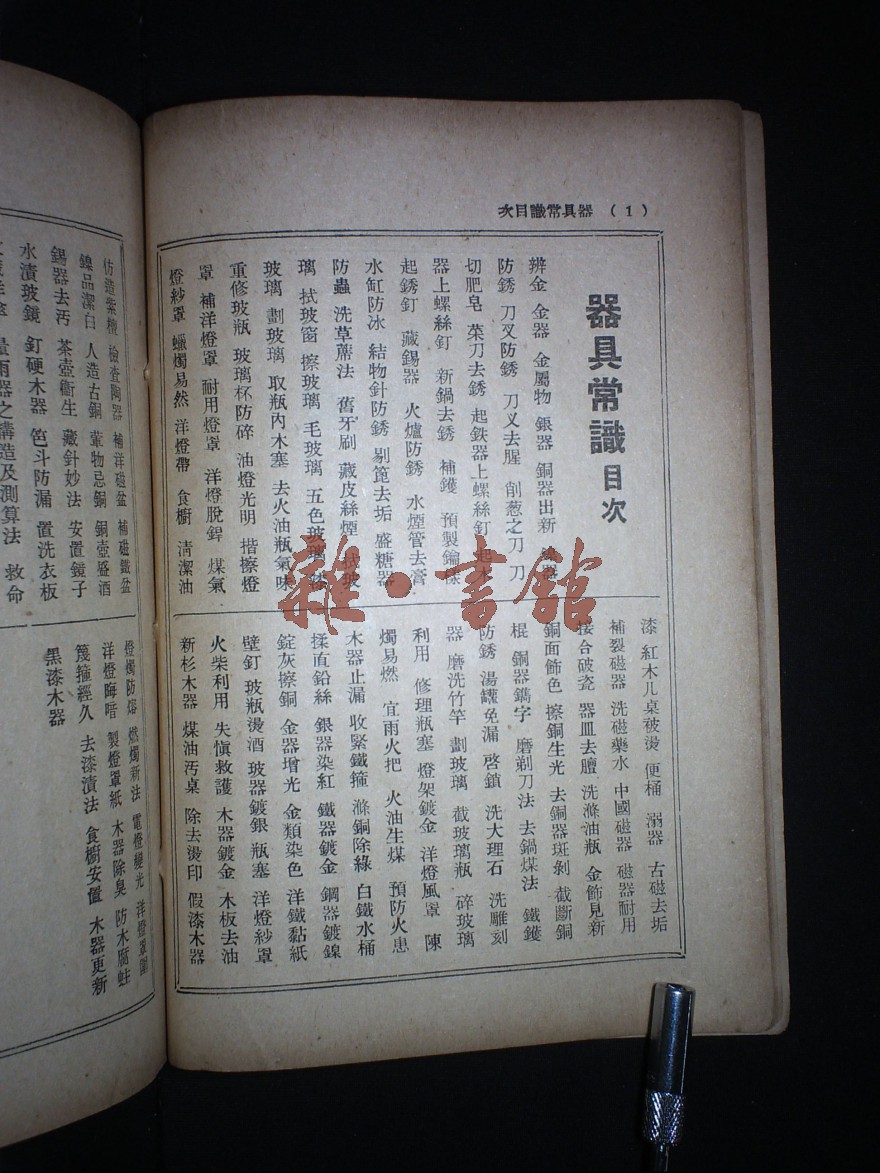 器具常識目次 （1）
器具常識目次
辨金 金器 金屬物 銀器 銅器出新
防銹 刀叉防銹 刀叉去腥 削葱之刀 刀
切肥皂 菜刀去銹 起鉄器上螺絲釘 起木
器上螺絲釘 新鍋去銹 補鑊 預製鍋
起銹釘 藏錫器 火爐防銹 水煙管去膏
水缸防冰 結物針防銹 剔篦去垢 盛糖器
防蟲 洗草蓆法 舊牙刷 藏皮絲煙 拭玻
璃 拭玻窗 擦玻璃 毛玻璃 五色玻璃
玻璃 劃玻璃 取瓶內木塞 去火油瓶氣味
重修玻瓶 玻璃杯防碎 油燈光明 揩擦燈
罩 補洋燈罩 耐用燈罩 洋燈脫銲 煤氣
燈紗罩 蠟燭易然 洋燈帶 食櫥 清潔油
漆 紅木儿桌被燙 便桶 溺器 古磁去垢
補裂磁器 洗磁藥水 中國磁器 磁器耐用
接合破瓷 器皿去膻 洗滌油瓶 金飾見新
銅面飾色 擦銅生光 去銅器斑剝 截斷銅
棍 銅器鐫字 磨剃刀法 去鍋煤法 鐵鑊
防銹 湯罐免漏 啓鎖 洗大理石 洗雕刻
器 磨洗竹竿 劃玻璃 截玻璃瓶 碎玻璃
利用 修理瓶塞 燈架鍍金 洋燈風罩 陳
燭易燃 宜雨火把 火油生煤 預防火患
木器止漏 收緊鐵箍 滌銅除綠 白鐵水桶
揉直鉛絲 銀器染紅 鐵器鍍金 鋼器鍍鎳
錠灰擦銅 金器增光 金類染色 洋鐵黏紙
壁釘 玻瓶燙酒 玻器鍍銀 瓶塞 洋燈紗罩
火柴利用 失愼救護 木器鍍金 木板去油
新杉木器 煤油汚桌 除去燙印 假漆木器
仿造紫檀 檢查陶器 補洋磁盆 補磁鐵盆
鎳品潔白 人造古銅 葷物忌銅 銅壺盛酒
錫器去汚 茶壺衞生 藏針妙法 安置鏡子
水漬玻鏡 釘硬木器 笆斗防漏 置洗衣板
量雨器之構造及測算法 救命
燈燭防熔 燃燭新法 電燈變光 洋燈罩
洋燈晦暗 製燈罩紙 木器除臭 防木腐蛀
篾箍經久 去漆漬法 食櫥安置 木器更新
黑漆木器
雜·書館